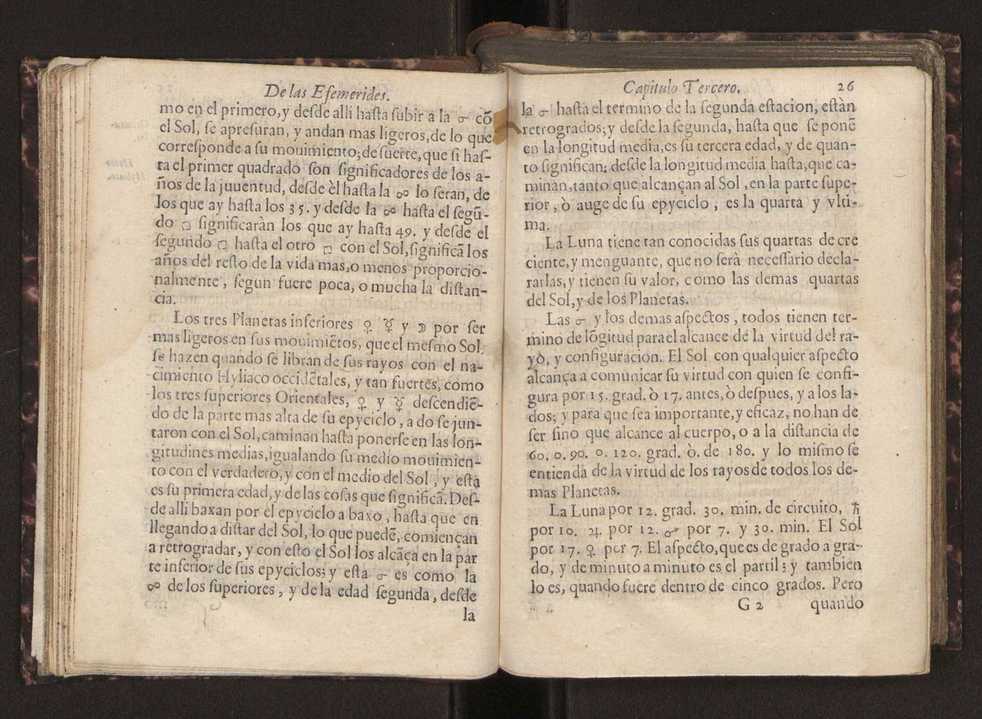 De las Efemerides.
mo en el primero, y desde alli hasta subir a la ☌ cõ
el Sol, se apresuran, y andan mas ligeros, de lo que
corresponde a su mouimiento; de suerte, que si has-
ta el primer quadrado son significadores de los a-
ños de la juuentud, desde èl hasta la ☍ lo seran, de
los que ay hasta los 35. y desde la ☍ hasta el segũ-
do □ significaràn los que ay hasta 49. y desde el
segundo □ hasta el otro □ con el Sol, significã los
años del resto de la vida mas, o menos proporcio-
nalmente, segun fuere poca, o mucha la distan-
cia.
Los tres Planetas inferiores ♀ ☿ y ☽ por ser
mas ligeros en sus mouimiẽtos, que el mesmo Sol.
se hazen quando se libran de sus rayos con el na-
cimiento Hyliaco occidẽtales, y tan fuertes, como
los tres superiores Orientales, ♀ y ☿ descendiẽ-
do de la parte mas alta de su epyciclo, a do se jun-
taron con el Sol, caminan hasta ponerse en las lon-
gitudines medias, igualando su medio mouimien-
to con el verdadero, y con el medio del Sol, y esta
es su primera edad, y de las cosas que significã. Des-
de alli baxan por el epyciclo a baxo, hasta que en
llegando a distar del Sol, lo que puedẽ, comiençan
a retrogradar, y con esto el Sol los alcãça en la par
te inferior de sus epyciclos; y esta ☌ es como la
☍ de los superiores, y de la edad segunda, desde
la
Capitulo Tercero. 26
la ☌ hasta el termino de la segunda estacion, estàn
retrogrados; y desde la segunda, hasta que se ponẽ
en la longitud media, es su tercera edad, y de quan-
to significan; desde la longitud media hasta, que ca-
minan, tanto que alcançan al Sol, en la parte supe-
rior, ò auge de su epyciclo, es la quarta y vlti-
ma.
La Luna tiene tan conocidas sus quartas de cre
ciente, y menguante, que no serà necessario decla-
rarlas, y tienen su valor, como las demas quartas
del Sol, y de los Planetas.
Las ☌ y los demas aspectos, todos tienen ter-
mino de lõgitud para el alcance de la virtud del ra-
yo, y configuracion. El Sol con qualquier aspecto
alcança a comunicar su virtud con quien se confi-
gura por 15. grad. ò 17. antes, ò despues, y a los la-
dos; y para que sea importante, y eficaz, no han de
ser sino que alcance al cuerpo, o a la distancia de
60. o. 90. o. 120. grad. ò. de 180. y lo mismo se
entienda de la virtud de los rayos de todos los de-
mas Planetas.
La Luna por 12. grad. 30. min. de circuito, ♄
por 10. ♃. por 12. ♂ por 7. y 30. min. El Sol
por 17. ♀ por 7. El aspecto, que es de grado a gra-
do, y de minuto a minuto es el partil; y tambien
lo es, quando fuere dentro de cinco grados. Pero
G 2 quando